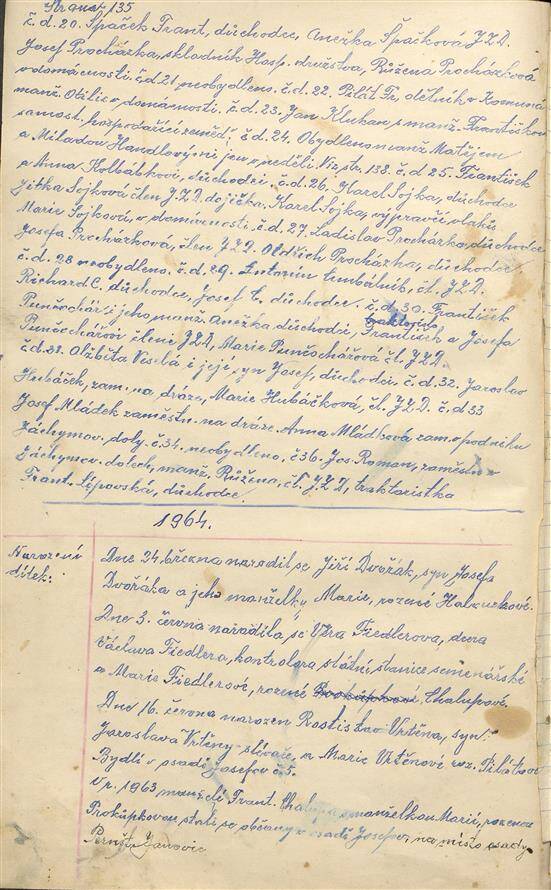 Strana 135
č.d. 20. Špaček Frant, důchodce, Anežka Špačková J.Z.D.
Josef Procházka, skladník Hosp. družstva, Růžena Procházková
v domácnosti. č.d 21 neobydleno. č.d. 22. Pilát Fr, dělník v Komuně
manž. Otilie v domácnosti. č.d. 23. Jan Klukan s manž. Františkou
samost. hospodařící zeměd. č.d. 24. Obydleno manž Matějem
a Miladou Handlovými jen v neděli. Viz str. 138. č.d 25. František
a Anna Kolbábkovi, důchodci. č.d. 26. Karel Sojka, důchodce
Jitka Sojková člen J.Z.D. dojička, Karel Sojka, výpravčí vlaků
Marie Sojková, v domácnosti. č.d. 27. Ladislav Procházka, důchodce
Josefa Procházková, člen J.Z.D. Oldřich Procházka, důchodce
č.d. 28 neobydleno. č.d. 29. Antonín čl. J.Z.D.
Richard C. důchodce, Josef důchodce. č.d. 30. František
Punčochář i jeho manž. Anežka důchodci, František a Josefa
traktorista
Punčochářovi členi JZD, Marie Punčochářová čl. J.Z.D.
č.d. 31. Alžběta Veselá i její syn Josef, důchodci, č.d. 32. Jaroslav
Hubáček, zam. na dráze, Marie Hubáčková, čl. J.Z.D. č.d 33
Josef Mládek zaměstn. na dráze. Anna Mládková zam. v podniku
Jáchymov. doly. č. 34. neobydleno, č 36. Jos. Roman, zaměstn. v
Jáchymov. dolech, manž. Růžena, čl. J.Z.D, traktoristka
Frant. Lípovská, důchodce
1964.
Narození
dítek.
Dne 24 března narodil se Jiří Dvořák, syn Josefa
Dvořáka a jeho manželky Marie, rozené
Dne 3. června narodila se Věra Fiedlerova, dcera
Václava Fiedlera, kontrolora státní stanice semenářské
a Marie Fiedlerové, rozené Chalupové.
Dne 16. června narozen Rostislav Vrtěna, syn
Jaroslava Vrtěny slévače, a Marie Vrtěnové roz. Pilátové
Bydlí v osadě Josefov č. 5.
V r. 1963 manželé Frant. Chalupa s manželkou Marií, rozenou
Prokůpkovou stali se občany v osadě Josefov, na místo osady
Pernšt. Janovic